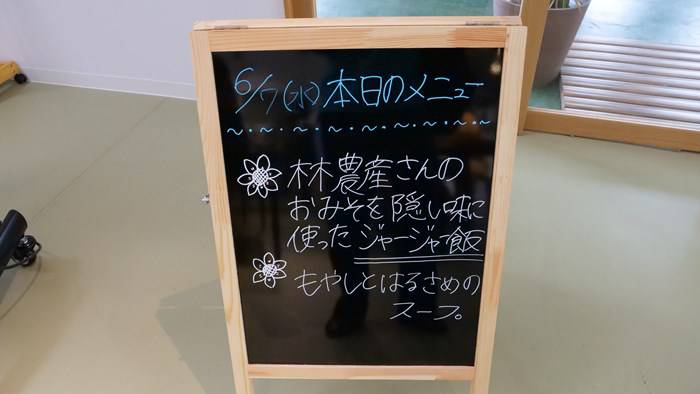 6/7(水)本日のメニュー
～・～・～・～・～・～・～・～・～
林農産さんの
おみそを隠し味に
使ったジャージャー飯
もやしとはるさめの
スープ。